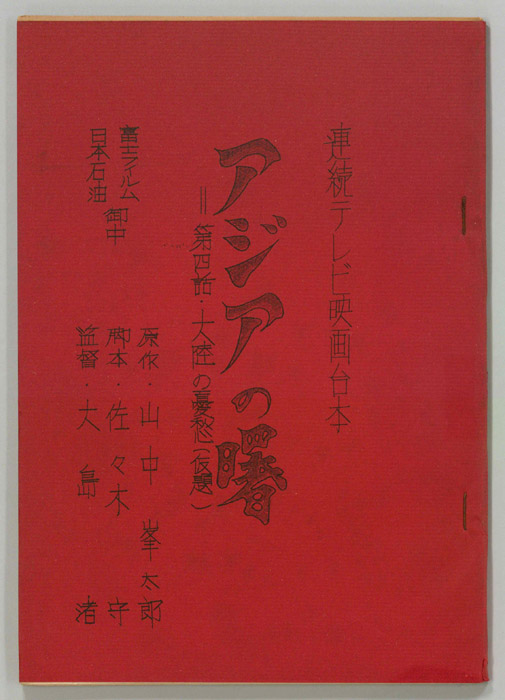 連続テレビ映画台本
アジアの曙
＝第四話・大陸の憂愁（仮題）
富士フィルム
日本石油
御中
原作・山中峯太郎
脚本・佐々木守
監督・大島渚